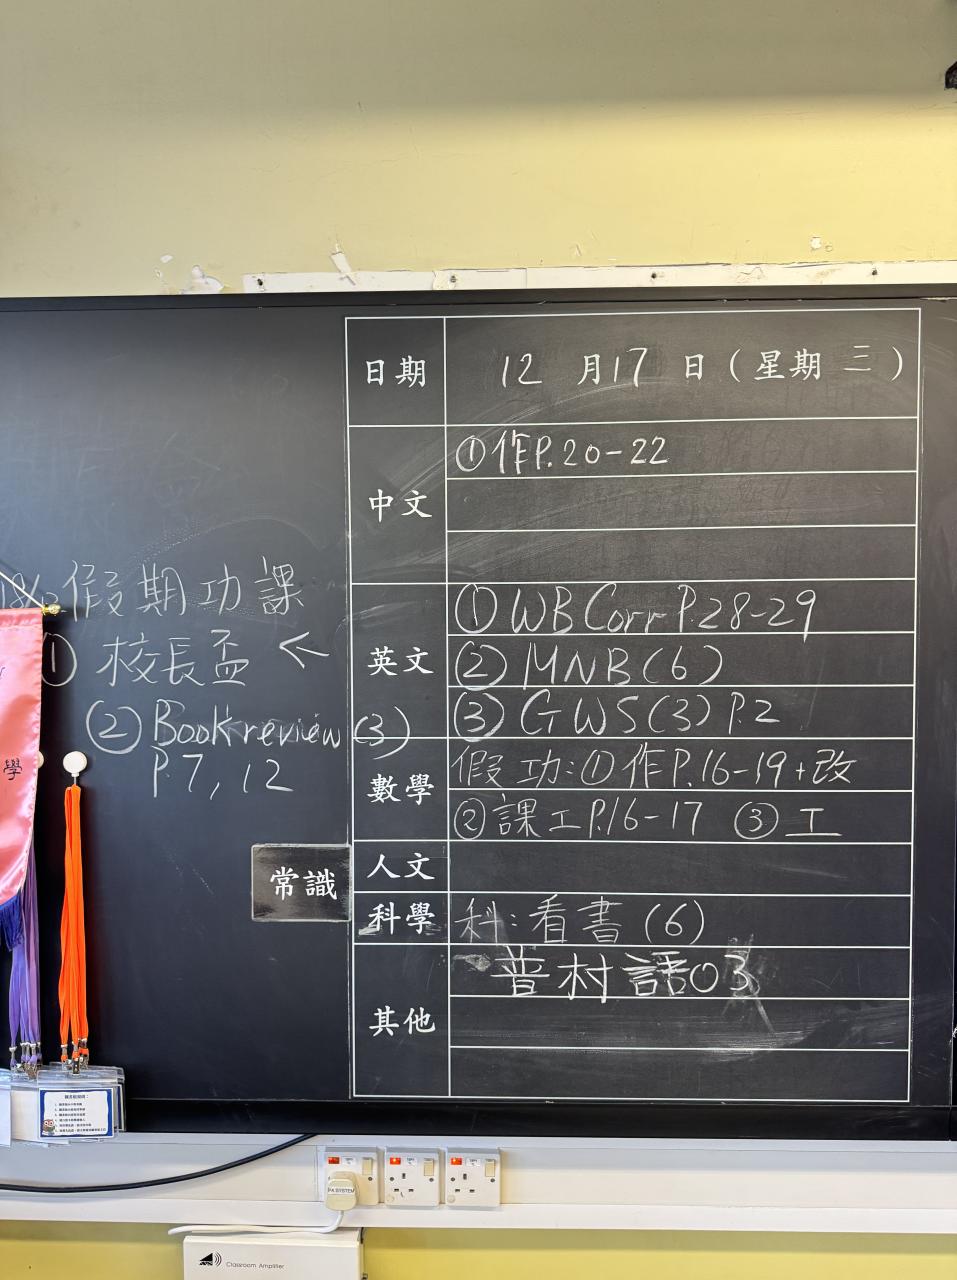 日期 12 月 17 日 ( 星期 三 )
中文
①作P.20-22
英文
①WB Corr P.28-29
②MNB(6)
③GWS(3) P.2
數學
假功:①作P.16-19+改
②課工P.16-17 ③工
人文
常識
科學
科:看書(6)
其他
普村話03
假期功課
① 校長盃 ←
② Book review (3)
P.7, 12
學
PA SYSTEM
Classroom Amplifier